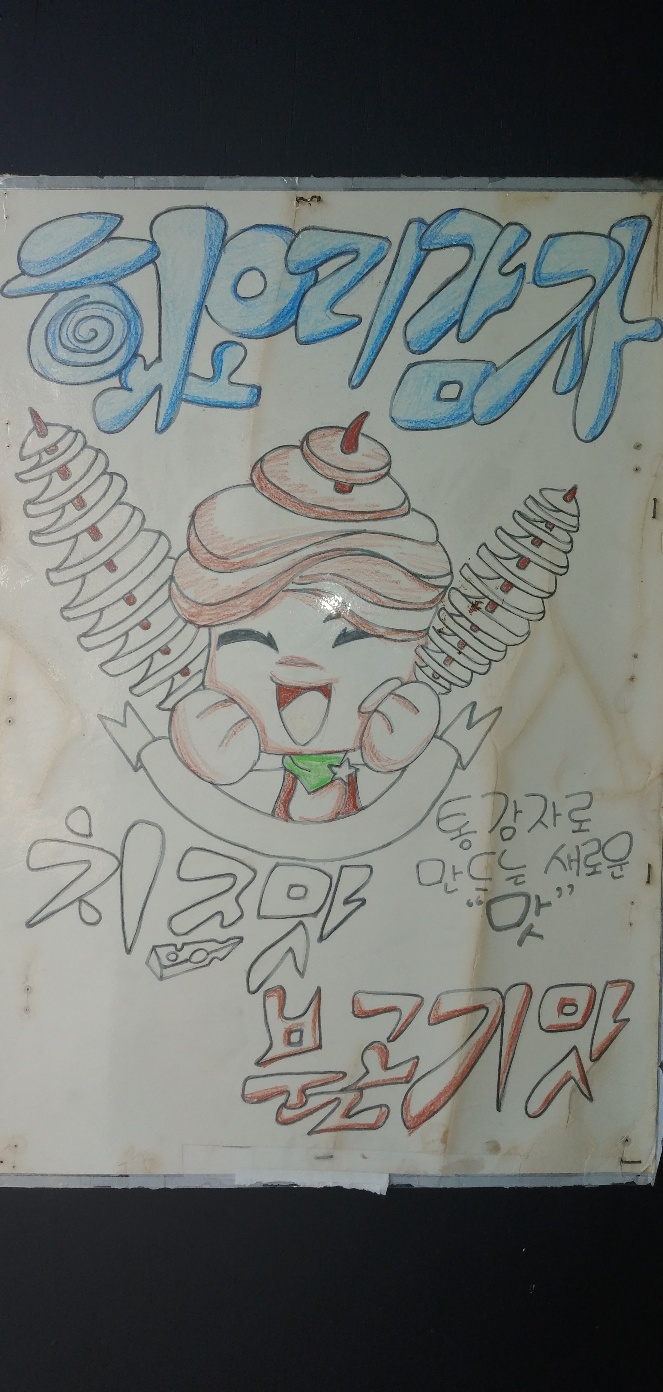 회오리감자
통감자로
만드는 새로운
“맛”
치즈맛
불고기맛